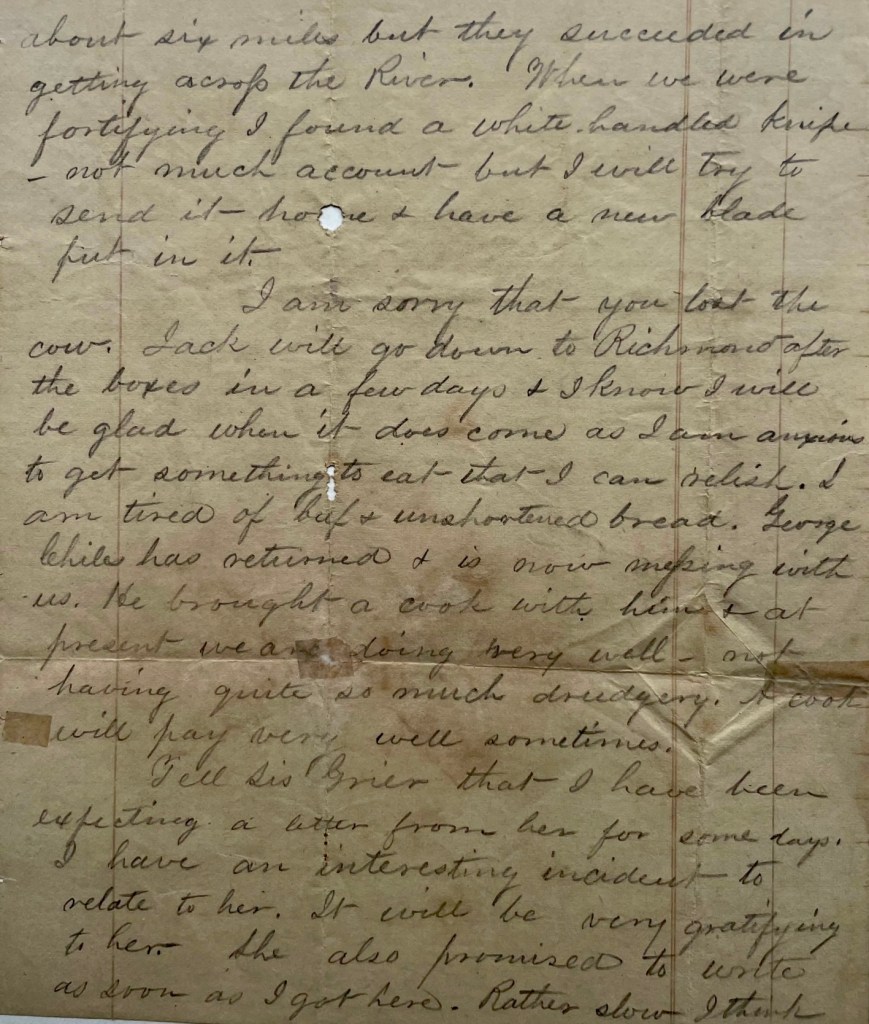 about six miles but they succeeded in
getting across the River. When we were
fortifying I found a white handled knife
- not much account but I will try to
send it home & have a new blade
put in it.
I am sorry that you lost the
cow. Jack will go down to Richmond after
the boxes in a few days & I know I will
be glad when it does come as I am anxious
to get something to eat that I can relish. I
am tired of beef & unshortened bread. George
Chiles has returned & is now messing with
us. He brought a cook with him & at
present we are doing very well - not
having quite so much drudgery. A cook
will pay very well sometimes.
Tell Sis Grier that I have been
expecting a letter from her for some days.
I have an interesting incident to
relate to her. It will be very gratifying
to her. She also promised to write
as soon as I got here. Rather slow I think